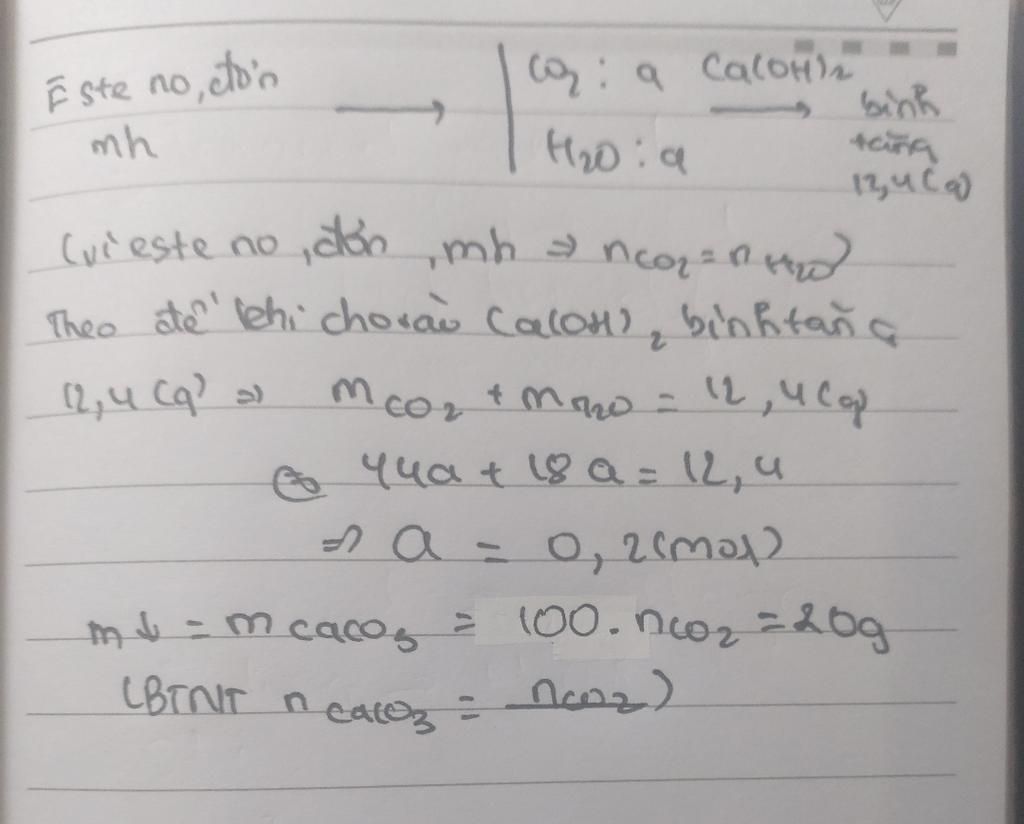 Este no, đơn CO2 : a Ca(OH)2 bình
mh ⟶ H2O : a ⟶ tăng
12,4 (g)
(vì este no, đơn, mh ⇒ nCO2 = nH2O)
Theo đề khi cho vào Ca(OH)2 bình tăng
12,4 (g) ⇒ mCO2 + mH2O = 12,4 (g)
⇔ 44a + 18a = 12,4
⇒ a = 0,2 (mol)
m↓ = mCaCO3 = 100. nCO2 = 20g
(BTNT nCaCO3 = nCO2)